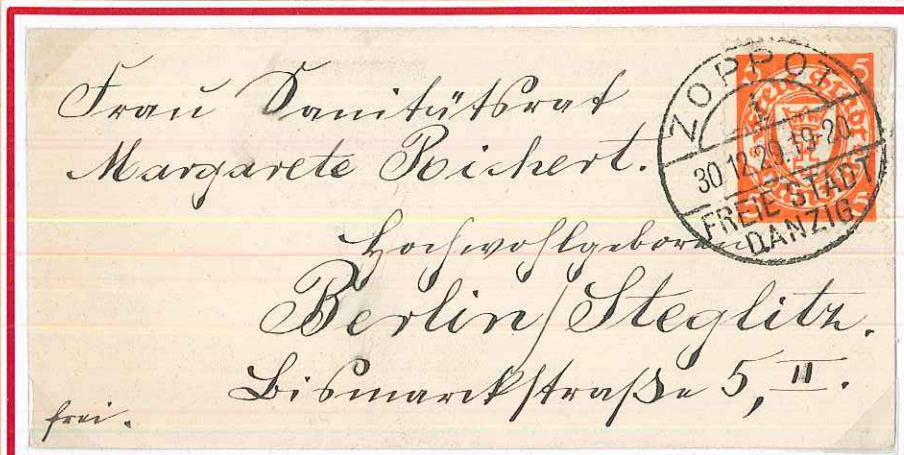 Frau Sanitätsrat
Margarete Richert.
Hochwohlgeboren
Berlin/Steglitz.
Bismarckstraße 5, II.
frei.
ZOPPOT
1
30.12.29.19-20
FREIE STADT
DANZIG
5 5
5